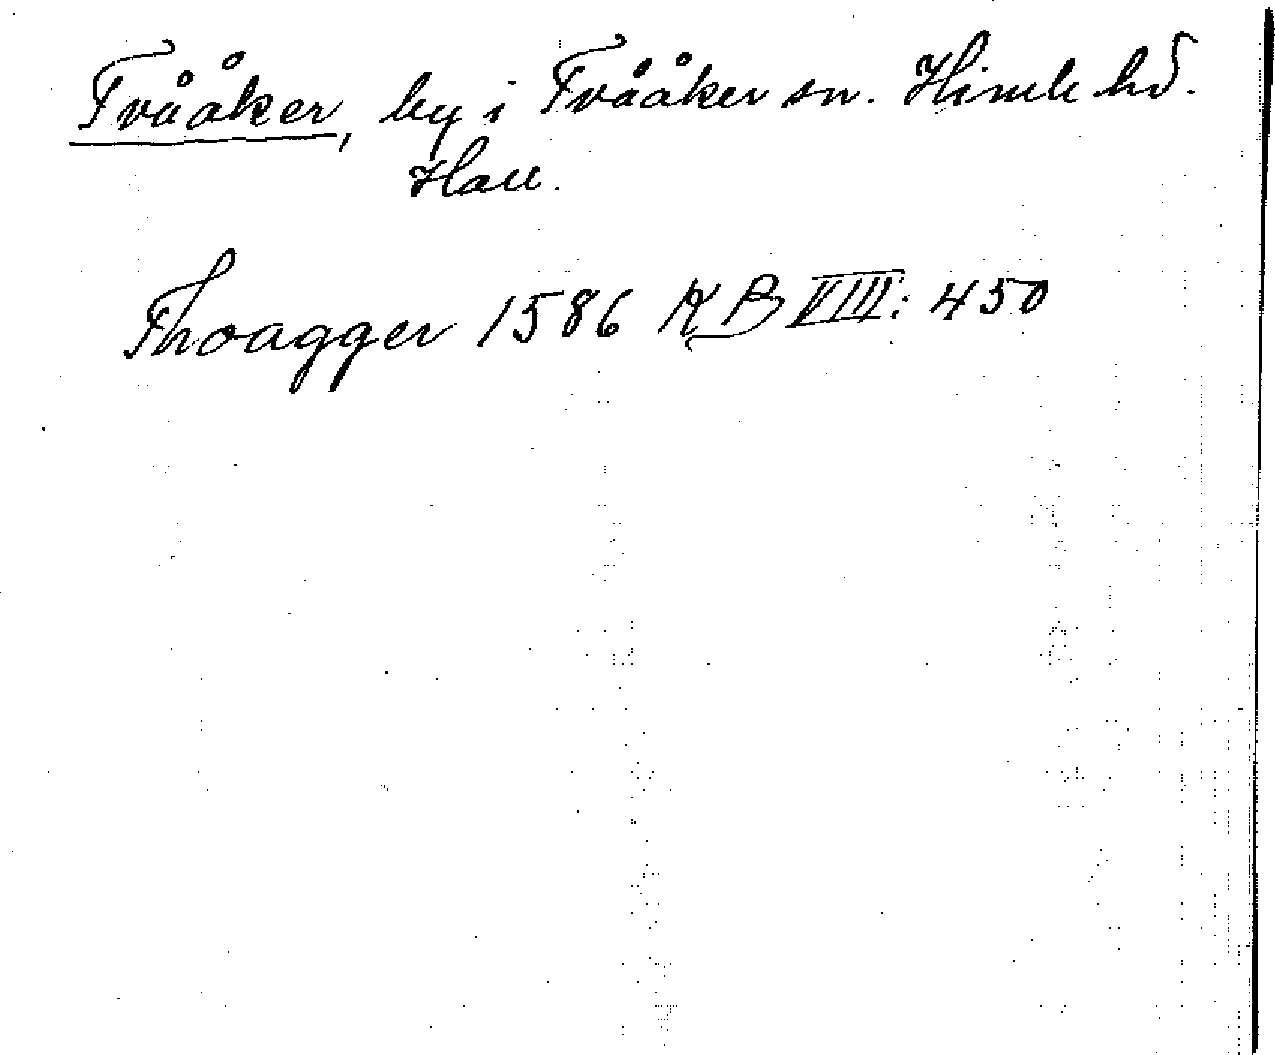 Tvååker, by i Tvååker sn. Himle hd.
Hall.
Thoagger 1586 KB VIII: 450